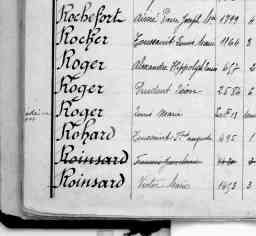 Rochefort Aimé Pierre Joseph Mie 1799 4
Rocher Toussaint Louis Marie 1164 3
Roger Alexandre Hippolyte Louis 457 2
Roger Prudent Léon 2556 6
Roger Louis Marie
Rohard Toussaint Fs Auguste 495 1
Roinsard
Roinsard Victor Marie 1493 3